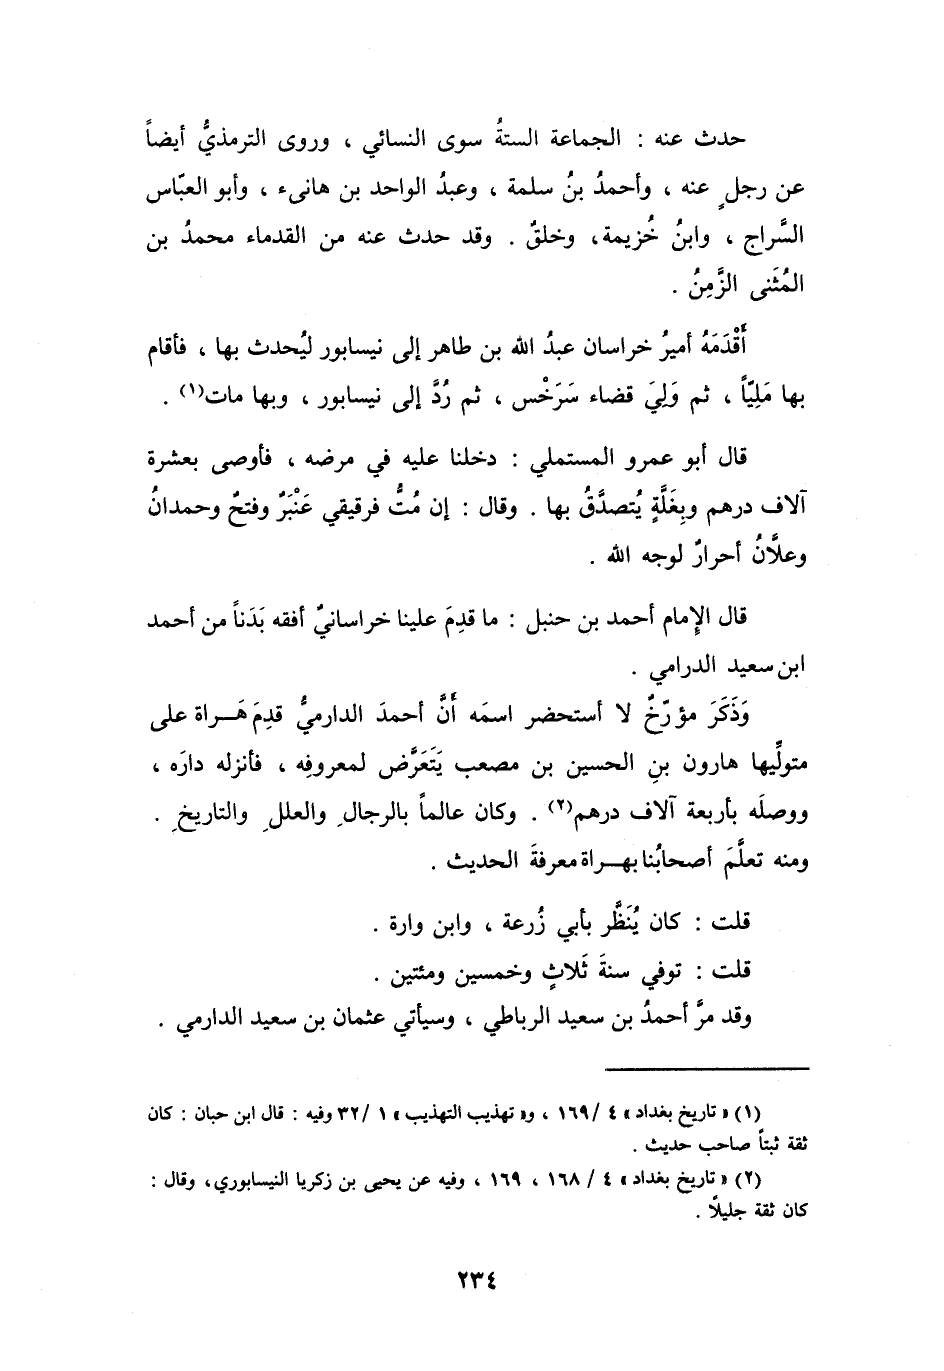 حدث عنه : الجماعة الستةُ سوى النسائي ، وروى الترمذيُّ أيضاً
عن رجلٍ عنه ، وأحمدُ بنُ سلمة ، وعبدُ الواحد بن هانىء ، وأبو العبّاس
السَّراج ، وابنُ خُزيمة، وخلقٌ . وقد حدث عنه من القدماء محمدُ بن
المُثَنى الزَّمِنُ .
أَقْدَمَهُ أميرُ خراسان عبدُ الله بن طاهر إلى نيسابور ليُحدث بها ، فأقام
بها مَلِيّاً ، ثم وَلِيَ قضاء سَرَخْس ، ثم رُدَّ إلى نيسابور ، وبها مات(١) .
قال أبو عمرو المستملي : دخلنا عليه في مرضه ، فأوصى بعشرة
آلاف درهم وبِغَلَّةٍ يُتصدَّقُ بها . وقال : إن مُتُّ فرقيقي عَنْبَرٌ وفتحٌ وحمدانُ
وعلَّانُ أحرارٌ لوجه الله .
قال الإمام أحمد بن حنبل : ما قدِمَ علينا خراسانيٌ أفقه بَدَناً من أحمد
ابن سعيد الدرامي .
وَذَكَرَ مؤرّخٌ لا أستحضر اسمَه أَنَّ أحمدَ الدارميُّ قدِمَ هَراة على
متولِّيها هارون بنِ الحسين بن مصعب يَتَعَرَّض لمعروفِه ، فأنزله دارَه ،
ووصلَه بأربعة آلاف درهم(٢) . وكان عالماً بالرجالِ والعللِ والتاريخِ .
ومنه تعلَّمَ أصحابُنا بهراة معرفةَ الحديث .
قلت : كان يُنَظَّر بأبي زُرعة ، وابن وارة .
قلت : توفي سنةَ ثَلاثٍ وخمسين ومئتين .
وقد مرَّ أحمدُ بن سعيد الرباطي ، وسيأتي عثمان بن سعيد الدارمي .
(١) « تاريخ بغداد » ٤ /١٦٩ ، و« تهذيب التهذيب » ١ /٣٢ وفيه : قال ابن حبان : كان
ثقة ثبتاً صاحب حديث .
(٢) « تاريخ بغداد » ٤ / ١٦٨ ، ١٦٩ ، وفيه عن يحيى بن زكريا النيسابوري، وقال :
كان ثقة جليلًا .
٢٣٤